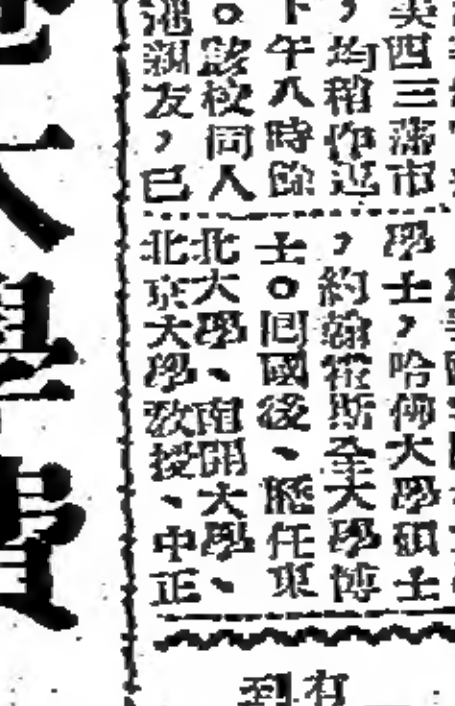 美西三藩市
，均稍作逗
下午八時餘
。該校同人
親友，已
學士，哈佛大學碩士
，約翰霍斯金大學博
士。回國後、歷任東
北大學、南開大學、
北京大學教授、中正
大學
有
到